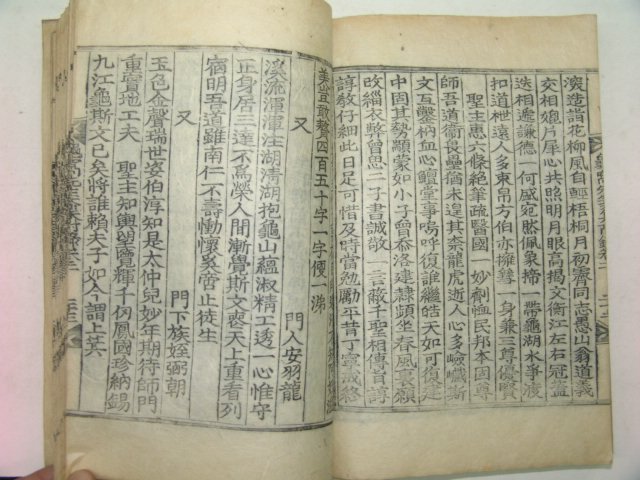 濙造詣花柳風自輕梧桐月初霽同志愚山翁道義
交相婉片犀心共照明月眼高揭文衡江左右冠蓋
迭相遞謙德一何盛宛然佩象揥 滯龜湖水爭液
扣道袒遠人多東帛方伯亦擁彗一身兼三尊優賢
聖主惠六條絶筆疏醫國一妙劑恤民邦本固尊
師吾道衛長壘猶未遑其柰龍虎逝人心多嶮巇斯
文互鬱蓊血心鱣堂事嗚呼復誰繼皓天如可復建
中固其勢顓蒙如小子曾忝洛建隷頻坐春風裳額
改緇衣獘曾思二子書誠敬 言敬千聖相傳旨諄
諄敎仔細此日足可惜及時當勉厲平昔丁寧誡終
美豈敢替四百五十字一字便一涕
又 門人安羽龍
溪流渾渾注湖淸湖抱龜山蘊淑精工透一心惟守
正身居三達不爲榮人間漸覺斯文喪天上重看列
宿明吾道雖南仁不壽慟懷奚啻止徒生
又 門下族姪弼朝
玉色金聲瑞世姿伯淳知是太仲兒妙年期待師門
重實地工夫 聖主知輿望覽輝千仞鳳國珍納錫
九江龜斯文已矣將誰賴夫子如今謂上箕